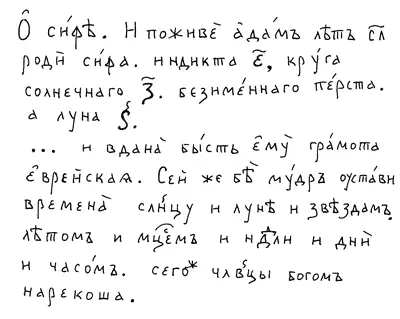 О҆ си́ѳѣ. И поживѐ а҆да́мъ лѣ́тъ с҃л
родѝ си́ѳа. индикта є҃, кру́га
солнечнаго з҃. безъиме́ннаго пе́рста.
а луна ѕ҃.
... и вдана̀ бы́сть є҆мꙋ̀ гра́мота
є҆вре́йская. Сей же бѣ̀ му́дръ оустави
времена̀ сл҃нцу и лунѣ̀ и звѣздамъ
лѣтомъ и мцⷭ҇емъ и нⷣлѝ и днѝ
и часо́мъ. сегоⷤ члв҃цы богомъ
нарекоша.